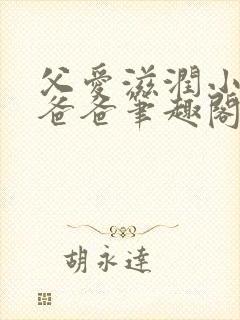 父愛滋潤小
爸爸筆趣閣
胡永達